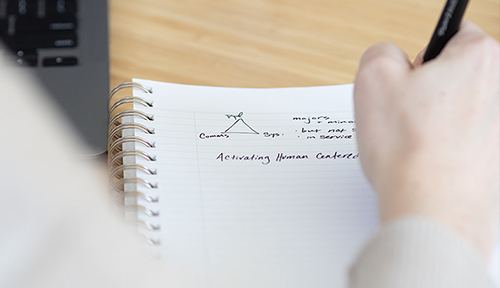 majors
Comms Sys.
. but not s
. in service
Activating Human Centered